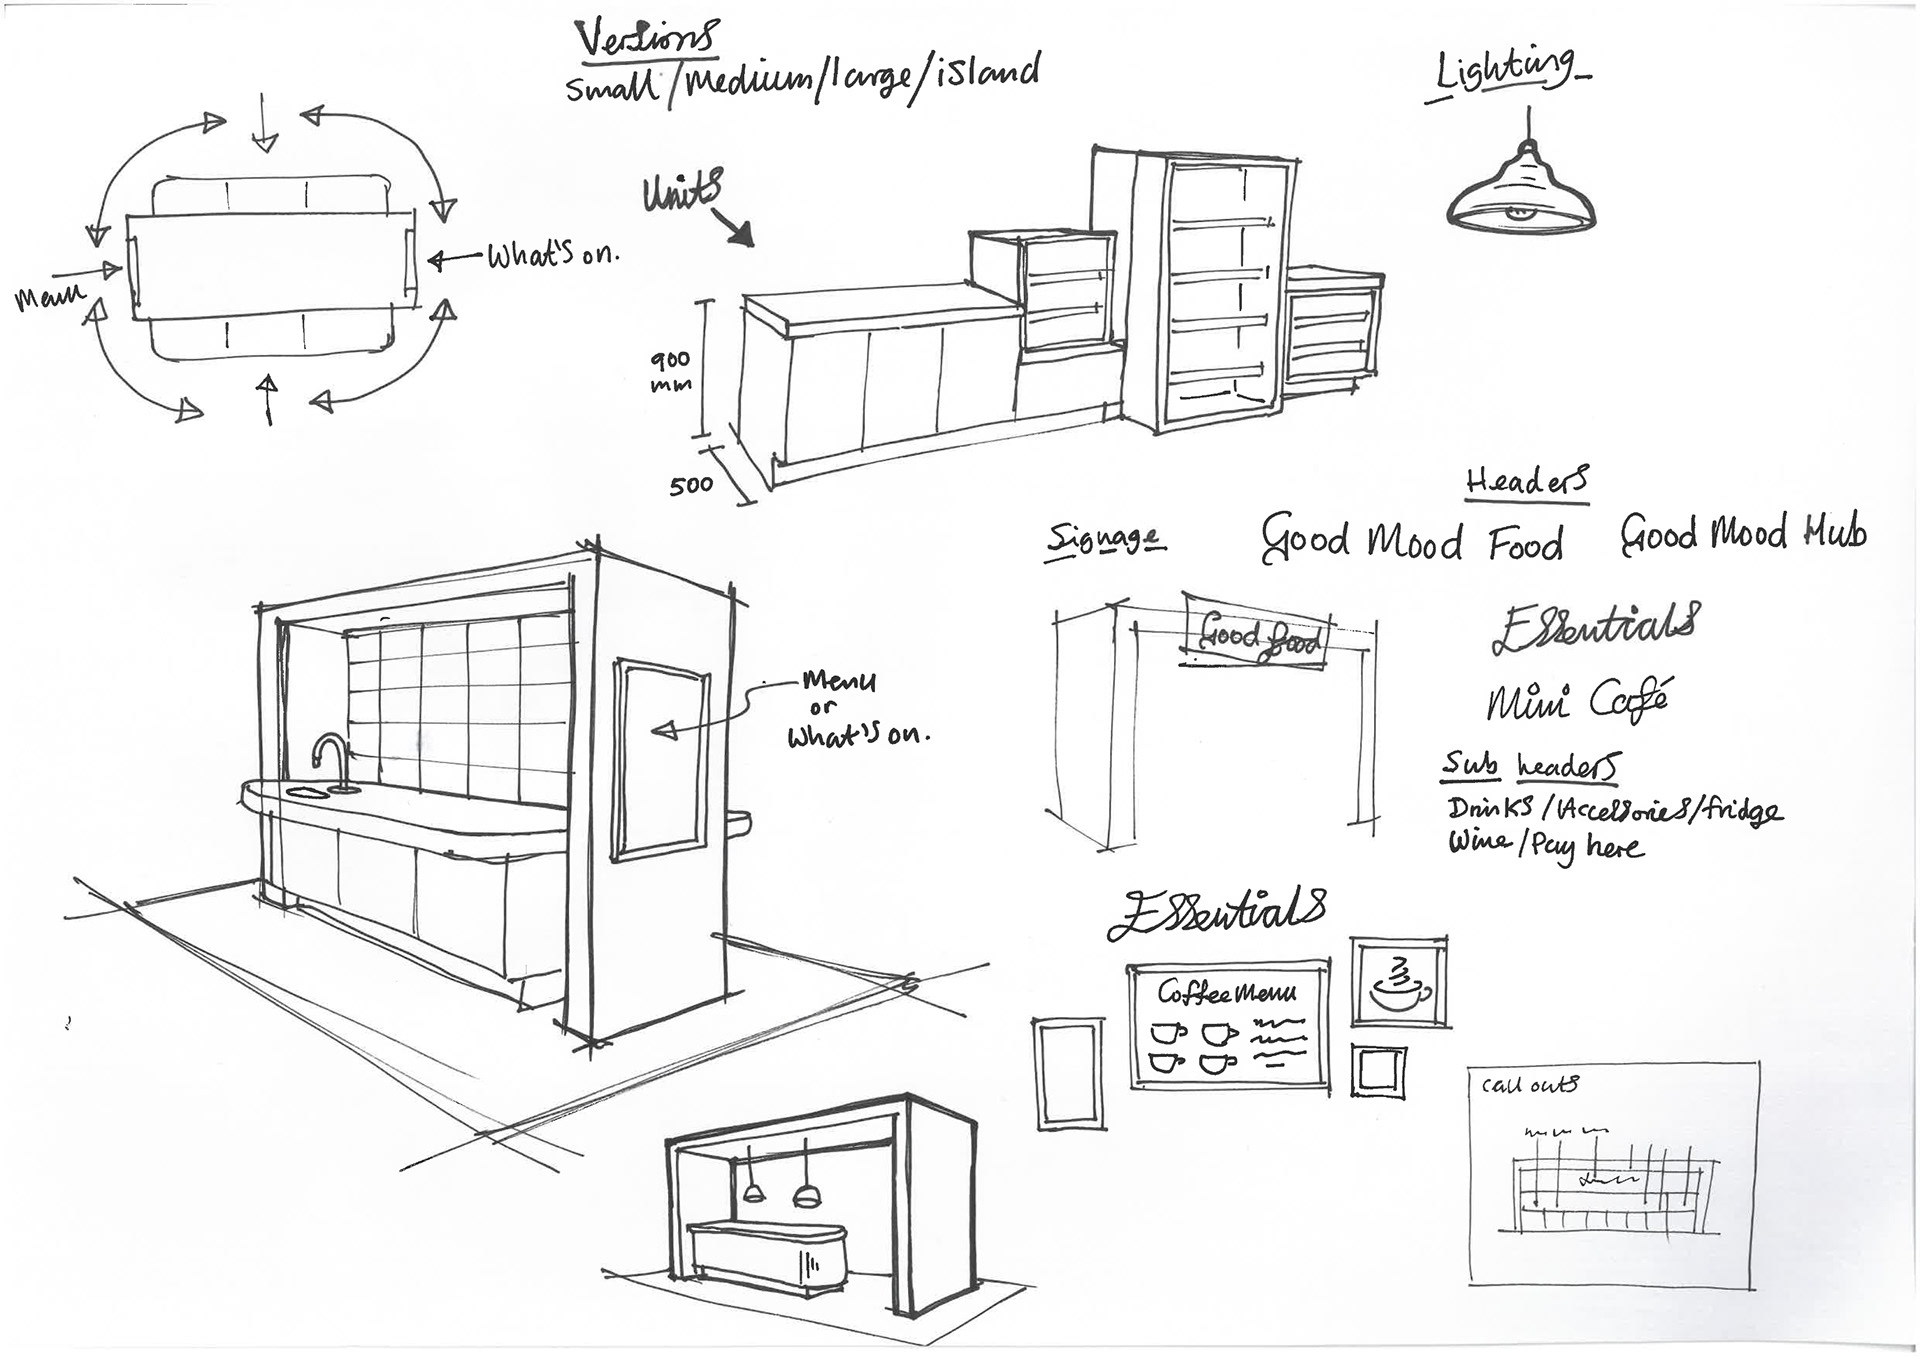 Versions
Small/Medium/large/island
Lighting
Units
What's on.
Menu
900
mm
500
Headers
Signage
Good Mood Food
Good Mood Hub
Good food
Essentials
Mini Café
Sub headers
Drinks/Accessories/fridge
Wine/Pay here
Menu
or
What's on.
Essentials
Coffee Menu
call outs